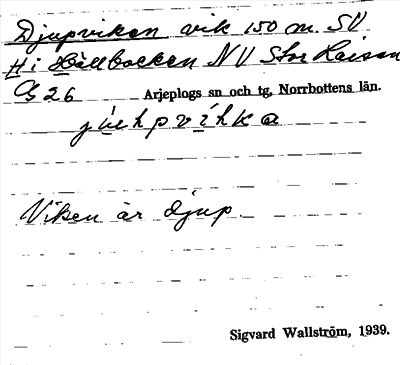 Djupviken vik 150 m. SV
H i Hällbacken NV Stor Laisan
G 26 Arjeplogs sn och tg, Norrbottens län.
juhpvihka
Viken är djup.
Sigvard Wallström, 1939.